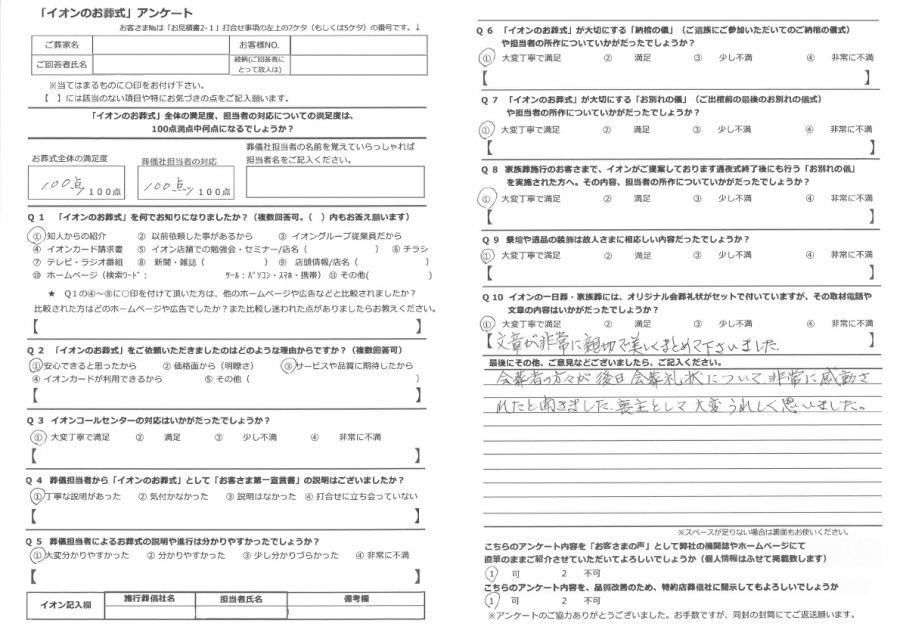 「イオンのお葬式」アンケート
お客さま№は「お見積書2-1」打合せ事項の左上の7ケタ（もしくは5ケタ）の番号です。↓
ご葬家名
お客様NO.
ご回答者氏名
続柄(ご回答者に
とって故人は)
※当てはまるものに〇印をお付け下さい。
【　】には該当のない項目や特にお気づきの点をご記入願います。
「イオンのお葬式」全体の満足度、担当者の対応についての満足度は、
100点満点中何点になるでしょうか？
お葬式全体の満足度
葬儀社担当者の対応
葬儀社担当者の名前を覚えていらっしゃれば
担当者名をご記入ください。
100点／100点
100点／100点
Q１　「イオンのお葬式」を何でお知りになりましたか？（複数回答可。（　）内もお答え願います）
①知人からの紹介　②　以前依頼した事があるから　③　イオングループ従業員だから
④　イオンカード請求書　⑤　イオン店舗での勉強会・セミナー/店名（　　　）　⑥ チラシ
⑦　テレビ・ラジオ番組　⑧　新聞・雑誌（　　　）　⑨　店頭情報/店名（　　　）
⑩　ホームページ（検索ﾜｰﾄﾞ：　　　ﾂｰﾙ：ﾊﾟｿｺﾝ・ｽﾏﾎ・携帯）⑪ その他(　　　)
★　Q１の④～⑧に〇印を付けて頂いた方は、他のホームページや広告などと比較されましたか？
比較された方はどのホームページや広告でしたか？また比較し迷われた点がありましたらお教えください。
【　　　】
Q２　「イオンのお葬式」をご依頼いただきましたのはどのような理由からですか？（複数回答可）
①安心できると思ったから　②　価格面から（明瞭さ）　③サービスや品質に期待したから
④イオンカードが利用できるから　⑤　その他（　　　）
【　　　】
Q３　イオンコールセンターの対応はいかがだったでしょうか？
①　大変丁寧で満足　②　満足　③　少し不満　④　非常に不満
【　　　】
Q４　葬儀担当者から「イオンのお葬式」として「お客さま第一宣言書」の説明はございましたか？
①丁寧な説明があった　②　気付かなかった　③　説明はなかった　④ 打合せに立ち会っていない
【　　　】
Q５　葬儀担当者によるお葬式の説明や進行は分かりやすかったでしょうか？
①大変分かりやすかった　②　分かりやすかった　③ 少し分かりづらかった　④ 非常に不満
【　　　】
イオン記入欄
施行葬儀社名
担当者氏名
備考欄
Q６　「イオンのお葬式」が大切にする「納棺の儀」（ご遺族にご参加いただいてのご納棺の儀式）
や担当者の所作についていかがだったでしょうか？
①　大変丁寧で満足　②　満足　③　少し不満　④　非常に不満
【　　　】
Q７　「イオンのお葬式」が大切にする「お別れの儀」（ご出棺前の最後のお別れの儀式）
や担当者の所作についていかがだったでしょうか？
①　大変丁寧で満足　②　満足　③　少し不満　④　非常に不満
【　　　】
Q８　家族葬施行のお客さまで、イオンがご提案しております通夜式終了後にも行う「お別れの儀」
を実施された方へ。その内容、担当者の所作についていかがだったでしょうか？
①　大変丁寧で満足　②　満足　③　少し不満　④　非常に不満
【　　　】
Q９　祭壇や遺品の装飾は故人さまに相応しい内容だったでしょうか？
①　大変丁寧で満足　②　満足　③　少し不満　④　非常に不満
【　　　】
Q10　イオンの一日葬・家族葬には、オリジナル会葬礼状がセットで付いていますが、その取材電話や
文章の内容はいかがだったでしょうか？
①　大変丁寧で満足　②　満足　③　少し不満　④　非常に不満
【文章が非常に親切で美しくまとめて下さいました。】
最後にその他、ご意見などございましたら、ご記入ください。
会葬者の方々が後日会葬礼状について非常に感動さ
れたと聞きました。喪主として大変うれしく思いました。
※スペースが足りない場合は裏面もお使いください。
こちらのアンケート内容を「お客さまの声」として弊社の機関誌やホームページにて
直筆のままご紹介させていただいてよろしいでしょうか（個人情報はふせて掲載致します）
1　可　2　不可
こちらのアンケート内容を、品質改善のため、特約店葬儀社に開示してもよろしいでしょうか
1　可　2　不可
※アンケートのご協力ありがとうございました。お手数ですが、同封の封筒にてご返送願います。